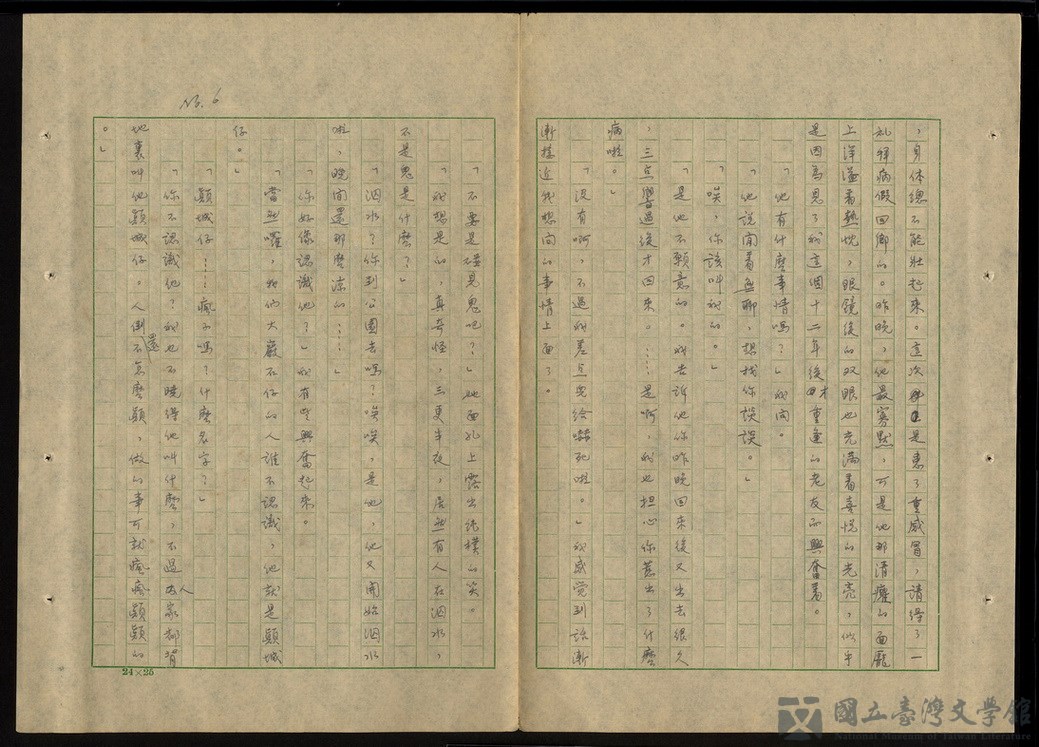 ，身体總不能壯起來。這次是患了重感冒，請得了一
礼拜病假回鄉的。昨晚，他最寡默，可是他那清癯的面龐
上洋溢着熱忱，眼鏡後的双眼也充滿着喜悅的光亮，似乎
是因為見了我這個十二年後才重逢的老友而興奮着。
「他有什麼事情嗎？」我问。
「他說閒着無聊，想找你談談。」
「唉，你該叫我的。」
「是他不願意的。我告訴他你昨晚回來後又出去很久
，三点響過後才回來。……是啊，我也担心你惹出了什麼
病啦。」
「沒有啊，不過我差点兒給嚇死啦。」我感觉到話漸
漸接近我想问的事情上面了。
No. 6
「不要是碰見鬼吧？」她面孔上露出純樸的笑。
「我想是的，真奇怪，三更半夜，居然有人在泅水，
不是鬼是什麼？」
「泅水？你到公園去嗎？唉唉，是他，他又開始泅水
啦，晚间還那麼凉的……」
「你好像認識他？」我有些興奮起來。
「當然囉，我们大巖石仔的人誰不認識，他就是顛城
仔。」
「顛城仔……瘋子嗎？什麼名字？」
「你不認識他？我也不曉得他叫什麼，不過人家都背
地裏叫他顛城仔。人倒還不怎麼顛，做的事可就瘋瘋顛顛的
。」
24×25
國立臺灣文學館
National Museum of Taiwan Literature